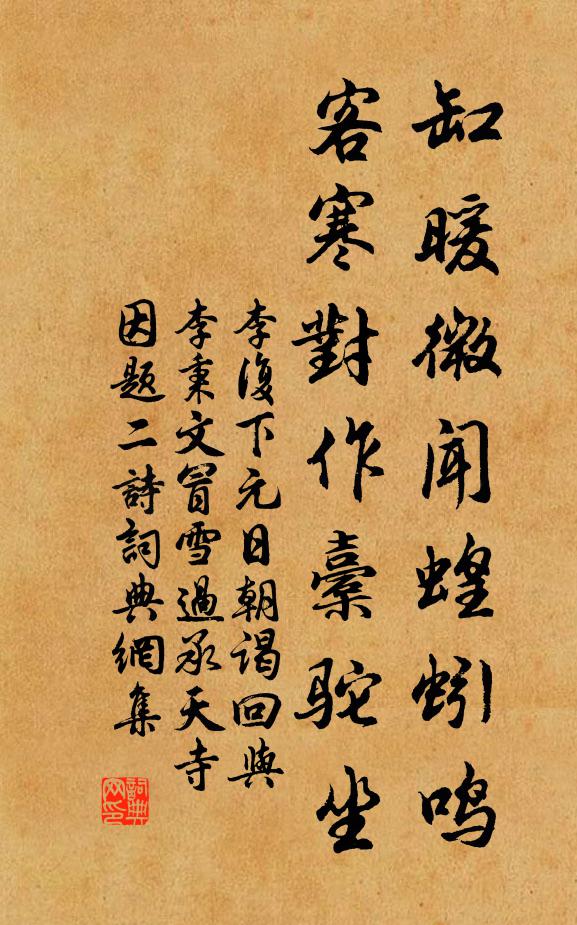 缸暖微闻蝗蚓鸣
客寒對作橐駝坐
李復下元日朝谒回與
李秉文冒雪過承天寺
因題二詩詞典網集
詞典
网印